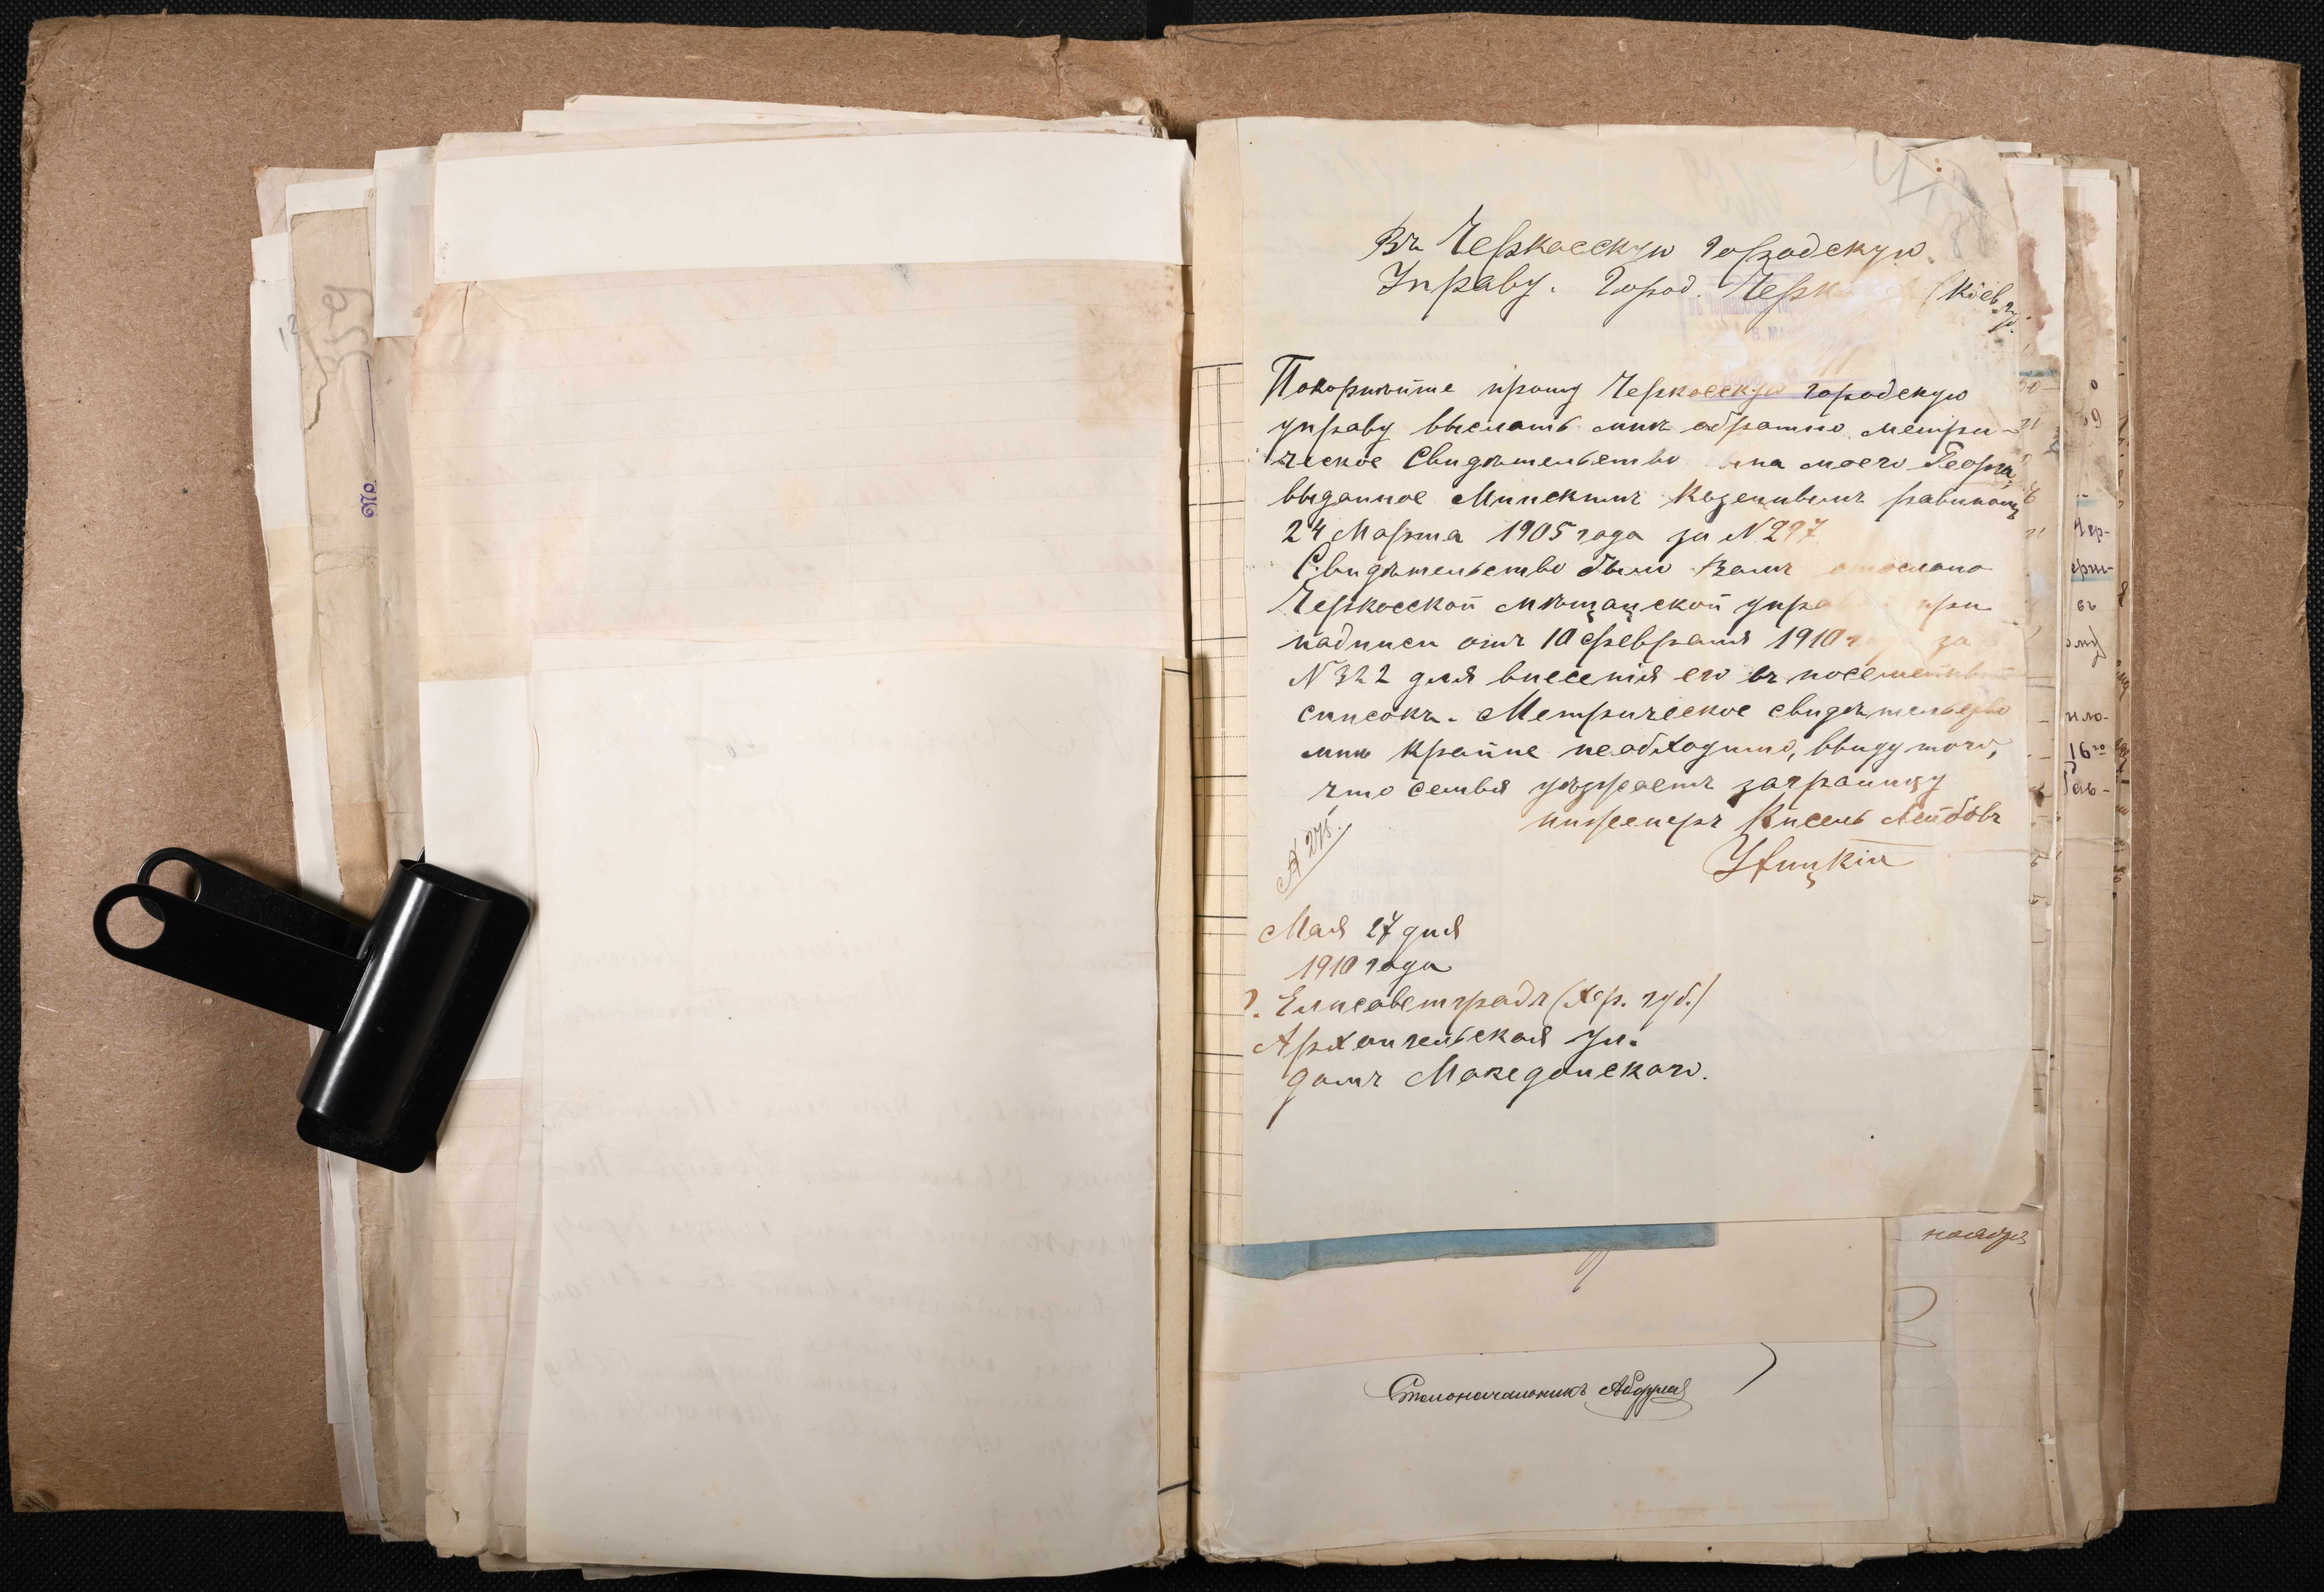 Въ Черкасскую Городскую
Управу. Город. Черк (Кіев. гу.
Покорнѣйше прошу Черкасскую Городскую
управу выслать мнѣ обратно метри-
ческое Свидѣтельство сына моего Георга,
выданное Минскимъ Казеннымъ равиномъ
24 Марта 1905 года за N 297
Свидѣтельство было Вамъ отослано
Черкасской мѣщанской управ при
надписи отъ 10 февраля 1910 г за
N 322 для внесенія его въ посемейный
списокъ. Метрическое свидѣтельство
мнѣ крайне необходимо, ввиду того,
что семья уѣзжаетъ заграницу
инженеръ Кисель Лейбовъ
№ 275.
Мая 27 дня
1910 года
г. Елисаветградъ (Хер. губ.)
Архангельская ул.
домъ Македонскаго.
ноября
Столоначальникъ